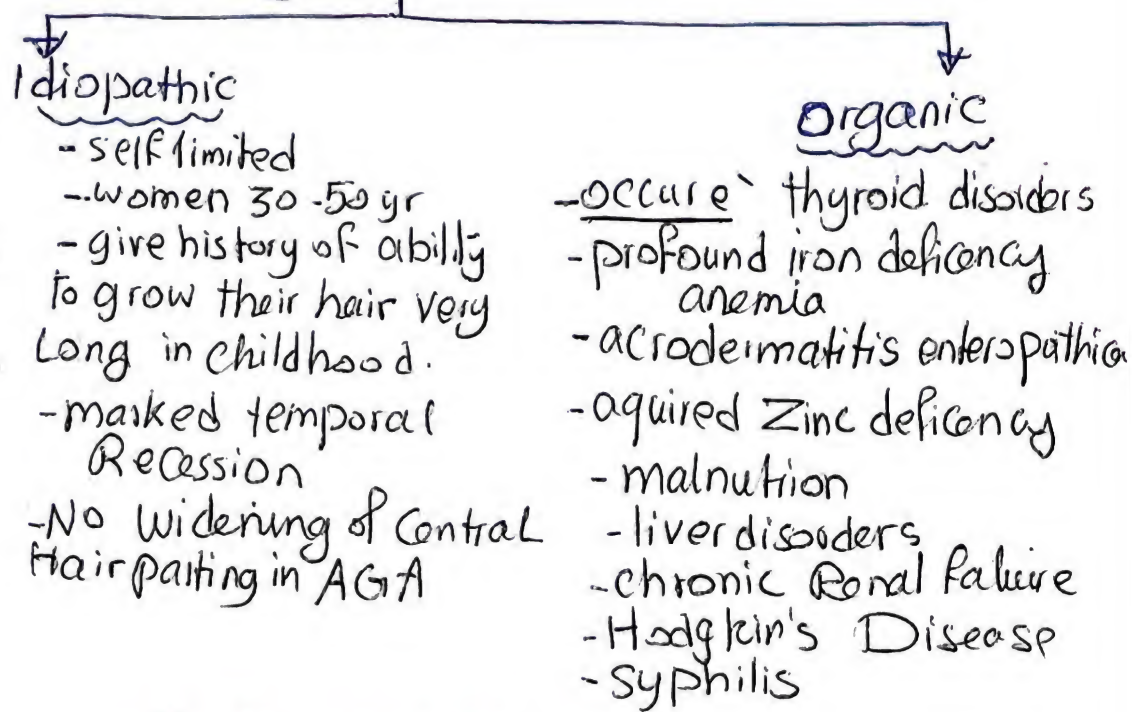 Idiopathic
- self limited
- women 30-50 yr
- give history of ability
to grow their hair very
Long in childhood.
- masked temporal
Recession
- No Widening of Central
Hair parting in AGA
Organic
- occure` thyroid disorders
- profound iron deficency
anemia
- acrodermatitis enteropathica
- aquired Zinc deficency
- malnutrion
- liver disorders
- chronic Renal failure
- Hodgkin's Disease
- Syphilis